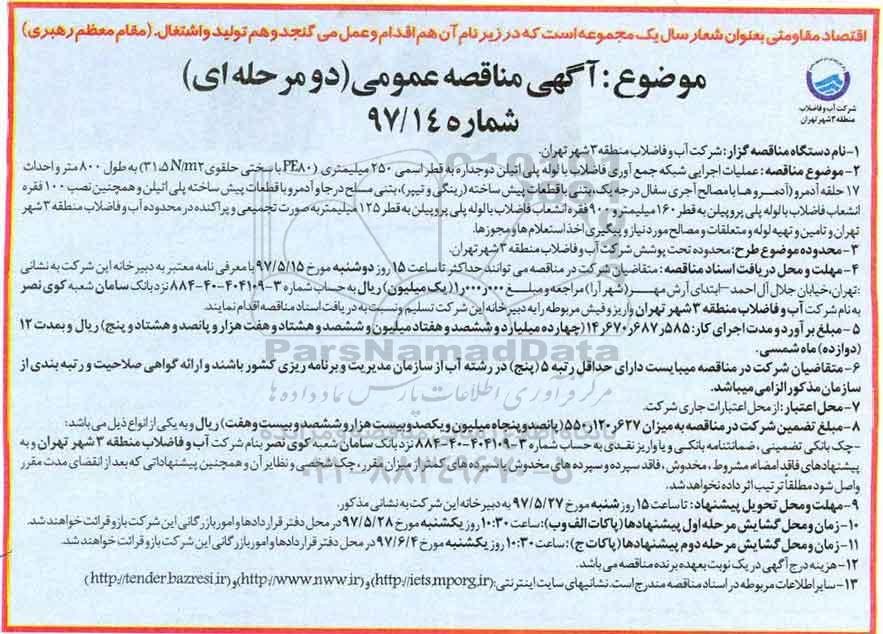 اقتصاد مقاومتی بعنوان شعار سال یک مجموعه است که در زیر نام آن هم اقدام و عمل می گنجد و هم تولید و اشتغال. (مقام معظم رهبری)
موضوع: آگهی مناقصه عمومی (دو مرحله ای)
شماره ۹۷/۱۴
شرکت آب و فاضلاب
منطقه ۳ شهر تهران
۱- نام دستگاه مناقصه گزار: شرکت آب و فاضلاب منطقه ۳ شهر تهران.
۲- موضوع مناقصه: عملیات اجرایی شبکه جمع آوری فاضلاب با لوله پلی اتیلن دوجداره به قطر اسمی ۲۵۰ میلیمتری (PE۸۰ با سختی حلقوی ۳۱.۵ N/m۲) به طول ۸۰۰ متر و احداث
۱۷ حلقه آدمرو (آدمروها با مصالح آجری سفال درجه یک، بتنی با قطعات پیش ساخته (رینگی و تیپر)، بتنی مسلح درجا و آدمرو با قطعات پیش ساخته پلی اتیلن و همچنین نصب ۱۰۰ فقره
انشعاب فاضلاب با لوله پلی پروپیلن به قطر ۱۶۰ میلیمتر و ۹۰ فقره انشعاب فاضلاب با لوله پلی پروپیلن به قطر ۱۲۵ میلیمتر به صورت تجمیعی و پراکنده در محدوده آب و فاضلاب منطقه ۳ شهر
تهران و تامین و تهیه لوله و متعلقات و مصالح مورد نیاز و پیگیری اخذ استعلام ها و مجوزها.
۳- محدوده موضوع طرح: محدوده تحت پوشش شرکت آب و فاضلاب منطقه ۳ شهر تهران.
۴- مهلت و محل دریافت اسناد مناقصه: متقاضیان شرکت در مناقصه می توانند حداکثر تا ساعت ۱۵ روز دوشنبه مورخ ۹۷/۵/۱۵ با معرفی نامه معتبر به دبیرخانه این شرکت به نشانی
:تهران، خیابان جلال آل احمد - ابتدای آرش مهر (شهر آرا) مراجعه و مبلغ ۱٫۰۰۰٫۰۰۰ (یک میلیون) ریال به حساب شماره ۳-۴۰۴۱۰۹-۴۰-۸۸۴ نزد بانک سامان شعبه کوی نصر
به نام شرکت آب و فاضلاب منطقه ۳ شهر تهران واریز و فیش مربوطه را به دبیرخانه این شرکت تسلیم و نسبت به دریافت اسناد مناقصه اقدام نمایند.
۵- مبلغ برآورد و مدت اجرای کار: ۱۴٫۶۷۰٫۶۸۷٫۵۸۵ (چهارده میلیارد و ششصد و هفتاد میلیون و ششصد و هشتاد و هفت هزار و پانصد و هشتاد و پنج) ریال و بمدت ۱۲
(دوازده) ماه شمسی.
۶- متقاضیان شرکت در مناقصه میبایست دارای حداقل رتبه ۵ (پنج) در رشته آب از سازمان مدیریت و برنامه ریزی کشور باشند و ارائه گواهی صلاحیت و رتبه بندی از
سازمان مذکور الزامی میباشد.
۷- محل اعتبار: از محل اعتبارات جاری شرکت.
۸- مبلغ تضمین شرکت در مناقصه به میزان ۵۵۰٫۱۲۰٫۶۲۷ (پانصد و پنجاه میلیون و یکصد و بیست هزار و ششصد و بیست و هفت) ریال و به یکی از انواع ذیل می باشد:
-چک بانکی تضمینی، ضمانتنامه بانکی و یا واریز نقدی به حساب شماره ۳-۴۰۴۱۰۹-۴۰-۸۸۴ نزد بانک سامان شعبه کوی نصر بنام شرکت آب و فاضلاب منطقه ۳ شهر تهران و به
پیشنهادهای فاقد امضاء، مشروط، مخدوش، فاقد سپرده و سپرده های مخدوش یا سپرده های کمتر از میزان مقرر، چک شخصی و نظایر آن و همچنین پیشنهاداتی که بعد از انقضای مدت مقرر
واصل شود مطلقاً ترتیب اثر داده نخواهد شد.
۹- مهلت و محل تحویل پیشنهاد: تا ساعت ۱۵ روز شنبه مورخ ۹۷/۵/۲۷ به دبیرخانه این شرکت به نشانی مذکور.
۱۰- زمان و محل گشایش مرحله اول پیشنهادها (پاکات الف و ب): ساعت ۱۰:۳۰ روز یکشنبه مورخ ۹۷/۵/۲۸ در محل دفتر قراردادها و امور بازرگانی این شرکت باز و قرائت خواهند شد.
۱۱- زمان و محل گشایش مرحله دوم پیشنهادها (پاکات ج): ساعت ۱۰:۳۰ روز یکشنبه مورخ ۹۷/۶/۴ در محل دفتر قراردادها و امور بازرگانی این شرکت باز و قرائت خواهند شد.
۱۲- هزینه درج آگهی در یک نوبت بعهده برنده مناقصه می باشد.
۱۳- سایر اطلاعات مربوطه در اسناد مناقصه مندرج است. نشانیهای سایت اینترنتی: (http://iets.mporg.ir) و (http://www.nww.ir) و (http://tender.bazresi.ir)
ParsNamadData
مرکز فرآوری اطلاعات پارس نماد داده ها
۰۲۱-۸۸۳۴۹۶۷۰-۵